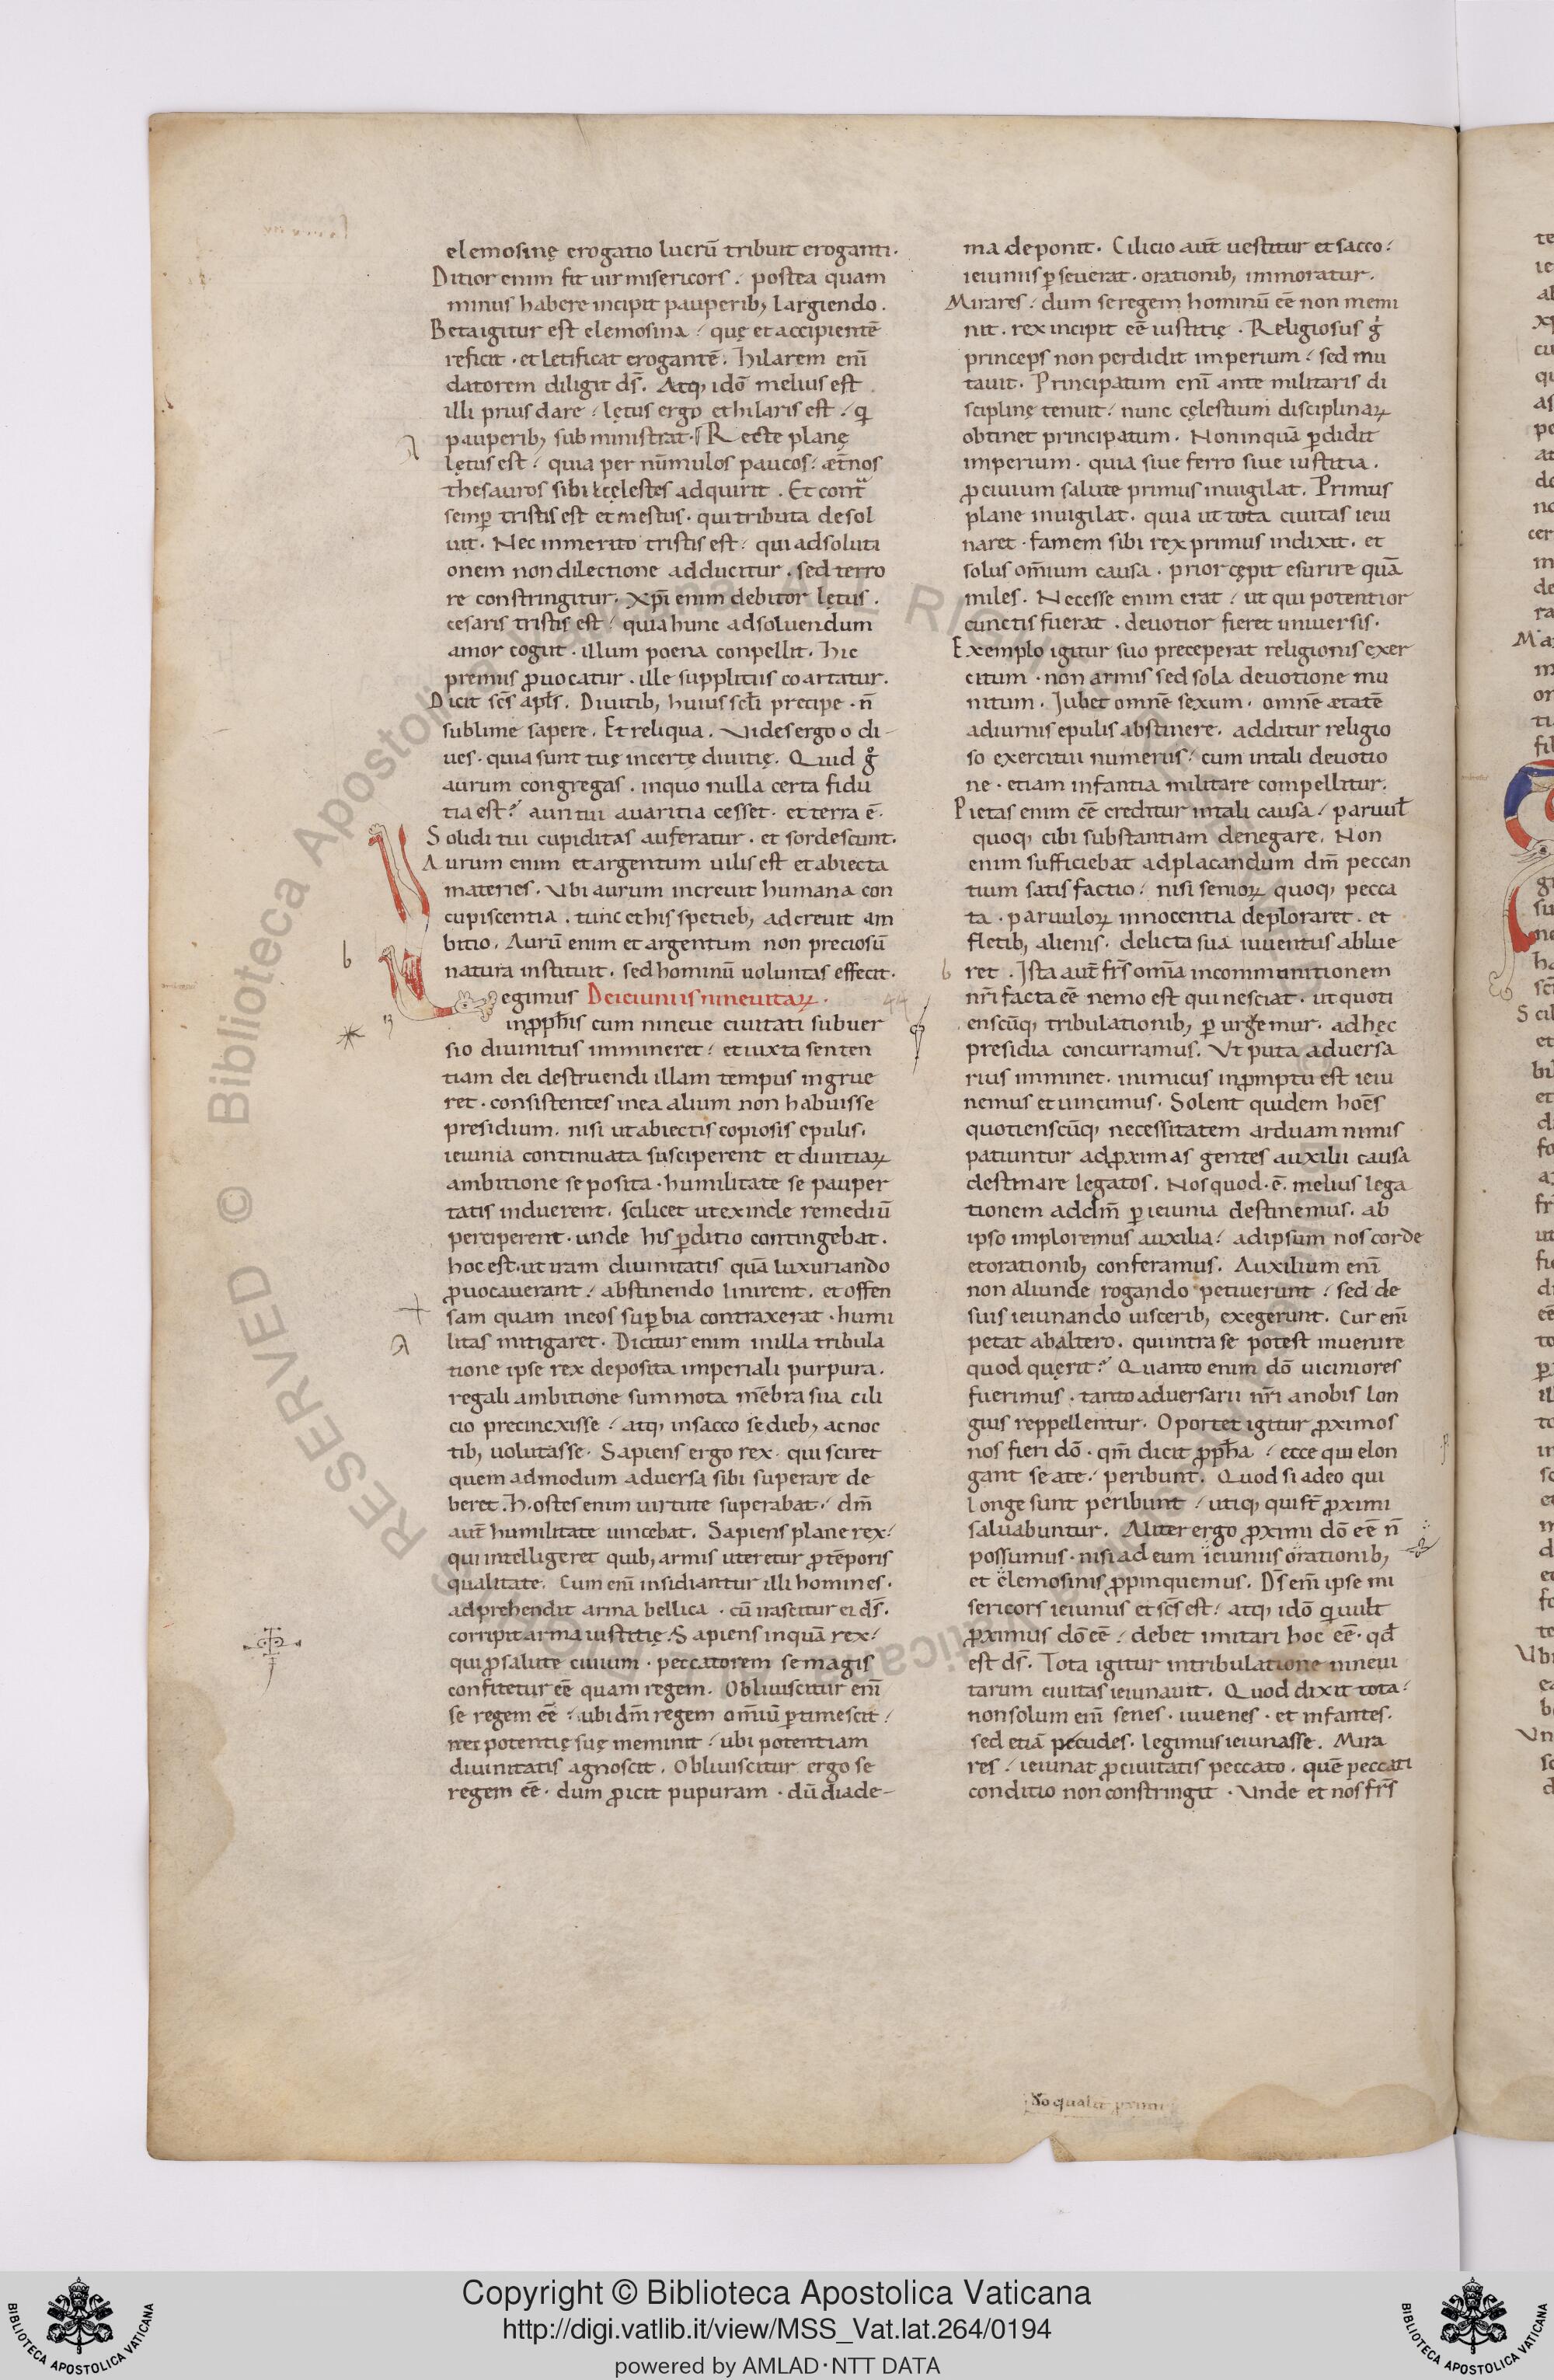 elemosinę erogatio lucrū tribuit eroganti.
Ditior enim fit uir misericors. postea quam
minus habere incipit pauperib; largiendo.
Beta igitur est elemosina. quę et accipientē
reficit. et letificat erogantē. hilarem eni̅
datorem diligit ds̄. Atq; idō melius est
illi prius dare. lętus ergo et hilaris est. q̄
pauperib; subministrat. Recte planę
lętus est. quia per nūmulos paucos. æt̄nos
thesauros sibi cęlestes adquirit. Et cont̄
semp̱ tristis est et mestus. qui tributa desol
uit. Nec inmerito tristis est. qui ad soluti
onem non dilectione adducitur. sed terro
re constringitur. Xp̄i enim debitor lętus.
cesaris tristis est. quia hunc ad soluendum
amor cogit. illum poena conpellit. hic
premiis ꝓuocatur. ille suppliciis coartatur.
Dicit sc̄s apl̄s. Diuitib; huius sc̄li precipe. n̄
sublime sapere. Et reliqua. Vides ergo o di-
ues. quia sunt tuę incertę diuitię. Quid g̊
aurum congregas. in quo nulla certa fidu
tia est? auri tui auaritia cesset. et terra ē.
Solidi tui cupiditas auferatur. et sordescunt.
Aurum enim et argentum uilis est et abiecta
materies. Vbi aurum increuit humana con
cupiscentia. tunc et his spetieb; adcreuit am
bitio. Aurū enim et argentum non preciosū
natura instituit. sed hominū uoluntas effecit.
Legimus De ieiuniis nineuitaꝝ.
in ꝓph̄is cum nineue ciuitati subuer
sio diuinitus immineret. et iuxta senten
tiam dei destruendi illam tempus ingrue
ret. consistentes in ea alium non habuisse
presidium. nisi ut abiectis copiosis epulis.
ieiunia continuata susciperent et diuitiaꝝ
ambitione seposita. humilitate se pauper
tatis induerent. scilicet ut exinde remediū
perciperent. unde his p̱ditio contingebat.
hoc est. ut iram diuinitatis quā luxuriando
ꝓuocauerant. abstinendo linirent. et offen
sam quam in eos sup̱bia contraxerat. humi
litas mitigaret. Dicitur enim in illa tribula
tione ipse rex deposita imperiali purpura.
regali ambitione summota mēbra sua cili
cio precincxisse. atq; in sacco se dieb; ac noc
tib; uolutasse. Sapiens ergo rex. qui sciret
quem admodum aduersa sibi superare de
beret. Hostes enim uirtute superabat. dm̄
aut̄ humilitate uincebat. Sapiens plane rex.
qui intelligeret quib; armis uteretur ꝓ tēporis
qualitate. Cum em̄ insidiantur illi homines.
adprehendit arma bellica. cū irascitur ei ds̄.
corripit arma iustitię. Sapiens inquā rex.
qui ꝓ salute ciuium. peccatorem se magis
confitetur eē quam regem. Obliuiscitur em̄
se regem eē. ubi dm̄ regem omīū p̱timescit.
nec potentię suę meminit. ubi potentiam
diuinitatis agnoscit. Obliuiscitur ergo se
regem eē. dum ꝓicit pupuram. dū diade-
ma deponit. Cilicio aut̄ uestitur et sacco.
ieiuniis p̱seuerat. orationib; immoratur.
Mirares. dum se regem hominū eē non memi
nit. rex incipit eē iustitię. Religiosus g̊
princeps non perdidit imperium. sed mu
tauit. Principatum eni̅ ante militaris di
sciplinę tenuit. nunc cęlestium disciplinaꝝ
obtinet principatum. Non inquā p̱didit
imperium. quia siue ferro siue iustitia.
ꝓ ciuium salute primus inuigilat. Primus
plane inuigilat. quia ut tota ciuitas ieiu
naret. famem sibi rex primus indixit. et
solus om̄ium causa. prior cępit esurire quā
miles. Necesse enim erat. ut qui potentior
cunctis fuerat. deuotior fieret uniuersis.
Exemplo igitur suo preceperat religionis exer
citum. non armis sed sola deuotione mu
nitum. Jubet omnē sexum. omnē ætatē
a diurnis epulis abstinere. additur religio
so exercitui numerus. cum in tali deuotio
ne. etiam infantia militare compellitur.
Pietas enim eē creditur in tali causa. paruul̄
quoq; cibi substantiam denegare. Non
enim sufficiebat ad placandum dm̄ peccan
tium satis factio. nisi senioꝝ quoq; pecca
ta. paruuloꝝ innocentia deploraret. et
fletib; alienis. delicta sua iuuentus ablue
ret. Ista aut̄ fr̄s om̄ia in communitionem
nr̄i facta eē nemo est qui nesciat. ut quoti
enscūq; tribulationib; p̱ urgemur. ad hęc
presidia concurramus. Vt puta aduersa
rius imminet. inimicus in ꝓmptu est ieiu
nemus et uincimus. Solent quidem hoēs
quotienscūq; necessitatem arduam nimis
patiuntur ad ꝓximas gentes auxilii causa
destinare legatos. Nos quod. ē. melius lega
tionem ad dm̄ p̱ ieiunia destinemus. ab
ipso imploremus auxilia. ad ipsum nos corde
et orationib; conferamus. Auxilium eni̅
non aliunde rogando petiuerunt. sed de
suis ieiunando uiscerib; exegerunt. Cur em̄
petat ab altero. qui intra se potest inuenire
quod quęrit? Quanto enim dō uiciniores
fuerimus. tanto aduersarii nr̄i a nobis lon
gius reppellentur. Oportet igitur ꝓximos
nos fieri dō. qm̄ dicit ꝓph̄a. ecce qui elon
gant se a te. peribunt. Quod si a deo qui
longe sunt peribunt. utiq; qui st̄ ꝓximi
saluabuntur. Aliter ergo ꝓximi dō eē n̄
possumus. nisi ad eum ieiuniis orationib;
et elemosinis ꝓpinquemus. Ds̄ em̄ ipse mi
sericors ieiunus et sc̄s est. atq; idō q̱ uult
ꝓximus dō eē. debet imitari hoc eē. qd̄
est ds̄. Tota igitur in tribulatione nineui
tarum ciuitas ieiunauit. Quod dixit tota.
non solum em̄ senes. iuuenes. et infantes.
sed etiā pecudes. legimus ieiunasse. Mira
res. ieiunat ꝓ ciuitatis peccato. quē peccati
conditio non constringit. Vnde et nos fr̄s
Copyright © Biblioteca Apostolica Vaticana
http://digi.vatlib.it/view/MSS_Vat.lat.264/0194
powered by AMLAD·NTT DATA